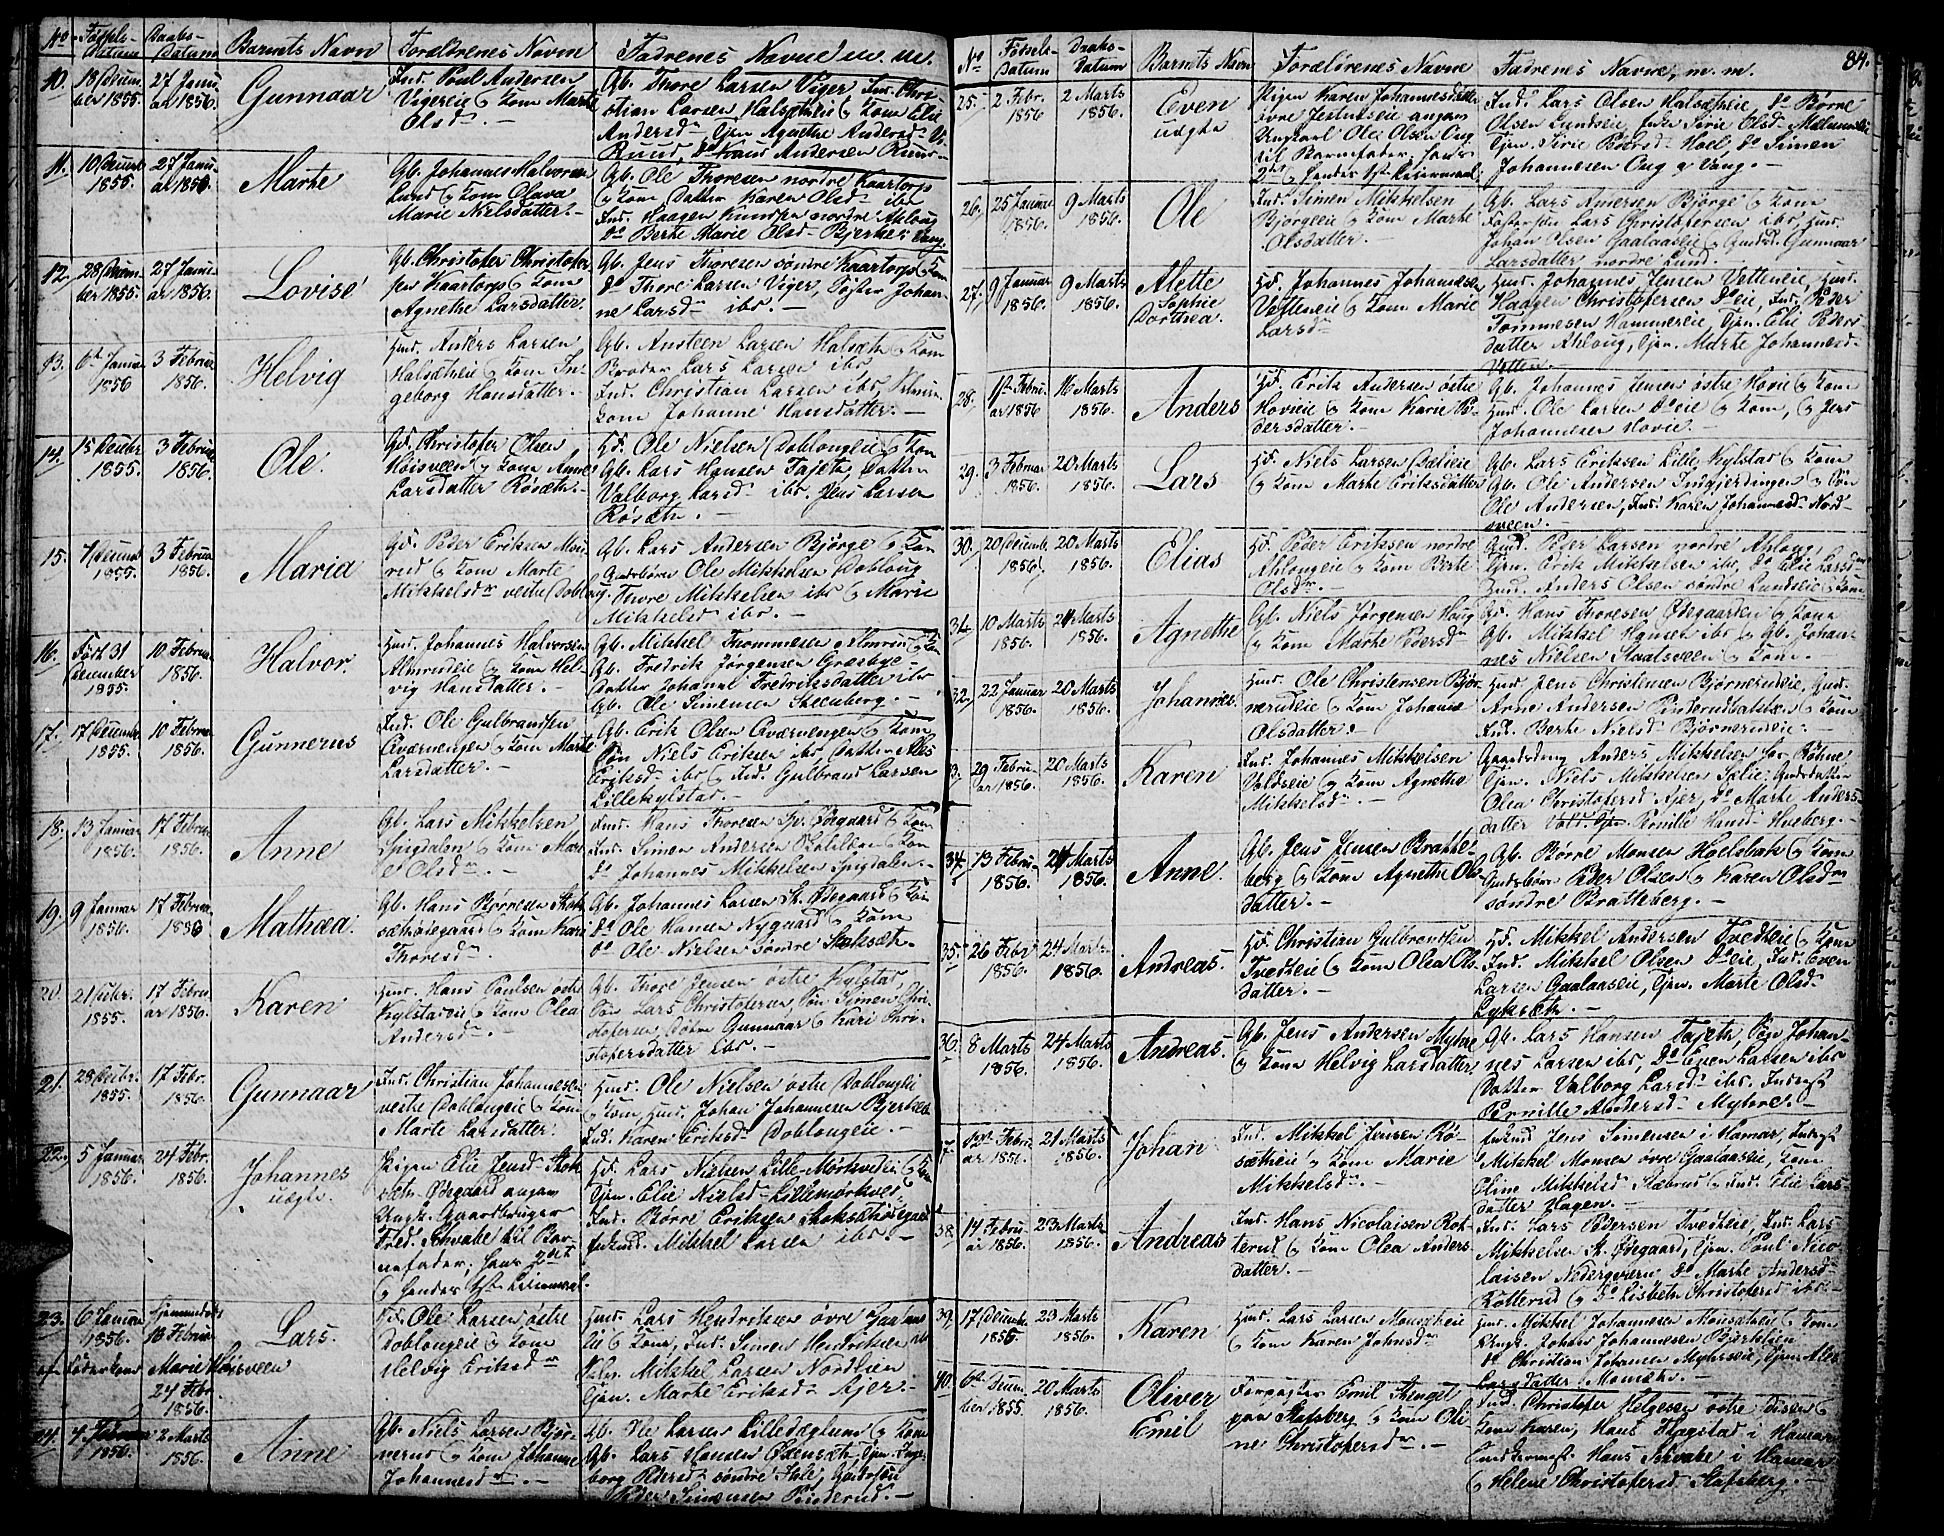 No. Fødsels- Datum Daabs- Datum Barnets Navn Forældrenes Navne Fadrenes Navne m. m.
10. 13 Decem- ber 1855. 27 Janu- ar 1856. Gunnaar
Ind. Poul Andersen
Vigereie & Kone Marthe
Olsd. -
Gb. Thore Larsen Viger, Ind. Chri-
stian Larsen Halsetheie & Kone Elie
Andersd. Tjen. Agnethe Andersd.
Ruud, Andersen Ruud -
11. 10 Decemb. 1855. 27 Janu- ar 1856. Marthe
Gb. Johannes Halvorsen
Lund & Kone Olava
Marie Nielsdatter. -
Gb. Ole Thoresen nordre Kaartorp
& Kone Datter Karen Olsd. ibr
Ind. Haagen Knudsen nordre Ahloug
Do Berthe Marie Olsd. Bjerke i Vang.
12. 28 Decem- ber 1855. 27 Janu- ar 1856. Lovise
Gb. Christofer Christofer-
sen Kaartorp & Kone
Agnethe Larsdatter.
Gb. Jens Thoresen søndre Kaartorp & Kone
Do Thore Larsen Viger, Søster Johan-
ne Larsd. ibr. -
13. 6te Januar 1856 3 Februar 1856. Helvig
Huusm. Anders Larsen
Halsetheie & Kone In-
geborg Hansdatter. -
Gb. Austeen Larsen Halseth & Kone
Broder Lars Larsen ibr,
Ind. Christian Larsen ibr,
Kone Johanne Hansdatter. -
14. 15 Decbr. 1855. 3 Februar 1856. Ole.
Gd. Christofer Olsen
Hoisveen & Kone Anne
Larsdatter Røsæth. -
Hd. Ole Nielsen Doblougeie & Kone
Gb. Lars Hansen Tajet, Datter
Valborg Larsd. ibr. Jens Larsen
Røsæth. -
15. 7 Decemb. 1855. 3 Februar 1856. Maria
Gd. Peder Eriksen
& Kone Marte
Mikkelsdr vestre Doblog.
Gb. Lars Andersen Bjørge & Kone
Gudsbørn Ole Mikkelsen Doblong
Tevre Mikkelsen ibr & Marie
Mikkelsd ibr. -
16. Født 31 December 1855. 10 Februar 1856. Halvor.
Huusm. Johannes Halvorsen
Almerudeie & Kone Hel-
vig Hansdatter. -
Gb. Mikkel Thommesen Almerud & Kone
Gb. Fredrik Jørgensen Græsbye -
Datter Johanne Fredriksdatter ibr
Gb. Ole Simensen Steenberg. -
17. 17 Decemb 1855. 10 Februar 1856. Gunnerus
Ind. Ole Gulbrandsen
Qværvengen & Kone Marthe
Larsdatter. -
Gb. Erik Olsen Qværvengen & Kone
Søn Niels Eriksen ibr, Datter Alis
Eriksd. ibr & Ind. Gulbrand Larsen
Lillekylstad. -
18. 13 Januar 1856. 17 Februar 1856. Anne
Gb. Lars Mikkelsen
Spigdalen & Kone Mari
Olsd. -
Ind. Hans Thoresen St. Ødegaard & Kone
Ind. Simen Andersen & Kone
Do Johannes Mikkelsen Spigdalen -
19. 9 Januar 1856. 17 Februar 1856 Mathæa.
Gb. Hans Børresen Stok-
sæthødegaard & Kone Kari
Thoresd.
Gb. Johannes Larsen St. Ødegaard & Kone
Do Ole Hansen Nygaard & Kone
Do Ole Nielsen søndre Stoksæth -
20. 21 Decbr. 1855. 17 Febru- ar 1856. Karen
Huusm. Hans Paulsen østre
Kylstadeie & Kone Olea
Andersd. -
Gb. Thore Jensen østre Kylstad,
Søn Lars Christofersen, Søn Simen Chri-
stofersen, Døtre Gunnaar & Kari Chri-
stofersdatter ibr. -
21. 28 Decbr. 1855. 17 Febr. 1856. Gunnaar
Ind. Christian Johannesen
vestre Doblougeie & Kone
Marte Larsdatter.
Huusm. Ole Nielsen østre Doblougeie
& Kone, Huusm. Johan Johannesen Bjerkeeie
Ind. Karen Eriksd. Doblougeie. -
22. 5 Januar 1856. 24 Febr. 1856. Johannes uægte.
Pigen Elie Jensd. Stok-
sæth Ødegaard angav
Ungk. Gaardbruger
Fred. Schwabe til Bar-
nefader, hans 2det
& hendes 1ste Leiermaal.
Hd. Lars Nielsen Lille Mørkvedeie & Kone
Tjen. Elie Nielsd. Lillemørkved -
Ind. Børre Eriksen Stoksæthødegaard
Mikkel Larsen ibr. -
23. 6 Januar 1856. hjemmedøbt 18 Februar Lars.
af Jordemoder Marie Høisveen
24 Febr. 1856.
Hd. Ole Larsen østre
Doblougeie & Kone
Helvig Eriksdr
Huusm. Lars Hendriksen øvre Gaalaas-
eie & Kone, Ind. Simen Hendriksen
Mikkel Larsen Nordlien
Tjen. Marthe Eriksd. Ajer. -
24. 4 Februar 1856. 2 Marts 1856. Anne
Gb. Niels Larsen Bjør-
nerud & Kone Johanne
Johannesd. -
Gb. Ole Larsen Lilledæglum & Kone
Gb. Lars Hansen Tjen. Inge-
borg Pedersd. søndre Gudsøn
Peder Simensen Pinderud. -
No. Fødsels- Datum Daabs- Datum Barnets Navn Forældrenes Navne Fadrenes Navne, m. m. 84.
25. 2 Febr. 1856 2 Marts 1856. Even uægte
Pigen Karen Johannesdatter
øvre angav
Ungkarl Ole Olsen Oug
til Barnefader, hans
2det & hendes 1ste Leiermaal.
Ind. Lars Olsen Halsetheie, Do Børre
Olsen Lundeeie, Sirie Olsd.
Tjen. Sirie Pedersd. Hoel, Do Simen
Johannesen Oug i Vang. -
26. 25 Januar 1856. 9 Marts 1856. Ole
Ind. Simen Mikkelsen
Bjørgeeie & Kone Marthe
Olsdatter. -
Gb. Lars Andersen Bjørge & Kone
Fostersøn Lars Christofersen ibr, Huusm.
Johan Olsen Gaalaaseie & Gudsd. Gunnaar
Larsdatter nordre Lund. -
27. 9 Januar 1856. 9 Marts 1856. Alette Sophie Dorthea.
Hd. Johannes Johannesen
Vetteneie & Kone Marie
Larsd.
Huusm. Johannes Jensen Vetteneie, Huusm.
Haagen Christofersen Doeie, Ind. Peder
Tommesen Hammereie, Tjen. Elie Peders-
datter Ahloug, Tjen. Marthe Johannesd.
Vetten. -
28. 1ste Febru- ar 1856 16 Marts 1856. Anders
Hd. Erik Andersen østre
Hovieie & Kone Karie Pe-
dersdatter. -
Gb. Johannes Jensen østre Hovie & Kone
Huusm. Ole Larsen Doeie & Kone, & Jens
Johannesen Hovie. -
29. 3 Februar 1856. 20 Marts 1856. Lars
Hd. Niels Larsen Daleeie
& Kone Marthe Eriksdatter
Gb. Lars Eriksen Lille Kylstad & Kone
Gb. Ole Andersen Indgjerdingen & Søn
Ole Andersen, Ind. Karen Johannesd. Nord-
sveen. -
30. 20 Decemb. 1856. 20 Marts 1856. Elias
Hd. Peder Eriksen nordre
Ahlougeie & Kone Berthe
Olsd. -
Huusm. Peder Larsen nordre Ahloug,
Tjen. Erik Mikkelsen ibr, Do Elie Larsd
Huusm. Anders Olsen søndre Lundeeie & Kone
31. 10 Marts 1856. 24 Marts 1856. Agnethe
Gb. Niels Jørgensen Houg
& Kone Marthe Pedersd.
Gd. Hans Thoresen Ødegaarden & Kone
Gb. Mikkel Hansen ibr & Gb. Johan-
nes Nielsen Staatsveen & Kone. -
32. 22 Januar 1856. 20 Marts 1856. Johannes.
Huusm. Ole Christensen Bjør-
nerudeie & Kone Johanne
Olsdatter. -
Huusm. Jens Christensen Bjørnerudeie, Huusm.
Arne Andersen Pinderudbakken & Kone
Ind. Berthe Nielsd. Bjørnerudeie. -
3. 29 Februar 1856. 20 Marts 1856. Karen
Ind. Johannes Mikkelsen
Voldseie & Kone Agnethe
Mikkelsd. -
Gaardsdreng Anders Mikkelsen
Tjen. Niels Mikkelsen Gudsdatter
Olea Christofersd. Ajer, Do Marthe Anders-
datter Vold. Pernille Hansd. Hveberg. -
34. 13 Febru- 1856. 24 Marts 1856. Anne.
Gb. Jens Jensen Bratte-
berg & Kone Agnethe Ols-
datter. -
Gb. Børre Monsen Hoelsbak & Kone
Gudsbørn Peder Olsen & Karen Olsd.
søndre Bratteberg. -
35. 26 Febr. 1856. 24 Marts 1856. Andreas.
Hd. Christian Gulbrandsen
Tvedteeie & Kone Olea Ols-
datter. -
Hd. Mikkel Andersen Tvedteeie & Kone
Ind. Mikkel Olsen Doeie, Ind. Even
Larsen Gaalaaseie, Tjen. Marte Olsd.
Lyksæth. -
36. 8 Marts 1856. 24 Marts 1856. Andreas.
Gb. Jens Andersen Myhre
& Kone Helvig Larsdatter.
Gb. Lars Hansen Tajet, Søn Johan-
nes Larsen ibr, Do Even Larsen ibr
Datter Valborg Larsd. ibr. Inders.
Pernille Andersd. Myhre. -
37. 12te Febru- ar 1856. 21 Marts 1856. Johan
Ind. Mikkel Jensen Rø-
sætheie & Kone Marie
Mikkelsd. -
Jens Simensen i Hamar,
Mikkel Monsen øvre Gaalaaseie, Kone
Oline Mikkelsd. & Ind. Elie Lars-
datter Hagen. -
38. 14 Febru- ar 1856. 23 Marts 1856. Andreas
Ind. Hans Nicolaisen Rot-
terud & Kone Olea Anders-
datter. -
Ind. Lars Pedersen Tvedteeie, Ind. Lars
Mikkelsen St. Ødegaard, Tjen. Poul Nico-
laisen Nedergvern Do Marthe Andersd.
Rotterud & Do Lisbeth Christofersd. ibr. -
39. 17 Decembr 1855 23 Marts 1856. Karen
Huusm. Lars Larsen Monsætheie
& Kone Karen Johnsd.
Huusm. Mikkel Johannesen Monsætheie & Kone
Ungk. Johan Johannesen Bjørkelien
Do Christian Johansen Myhrseie, Tjen. Alis
Larsdatter Monseth. -
40. 6te Decem- ber 1855. 20 Marts 1856. Oliver Emil
Forpagter Emil Stengel
paa Stafsberg & Kone Oli-
ne Christofersd. -
Ind. Christofer Helgesen østre Disen &
Kone Karen, Hans Flagstad i Hamar
Hans Schwabe i Hamar
& Helene Christofersd. Stafsberg. -